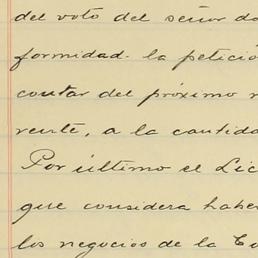 del voto del señor do
formidad la petició
contar del próximo
rente, a la cantida
Por último el Lic
que considera habe
los negocios de la